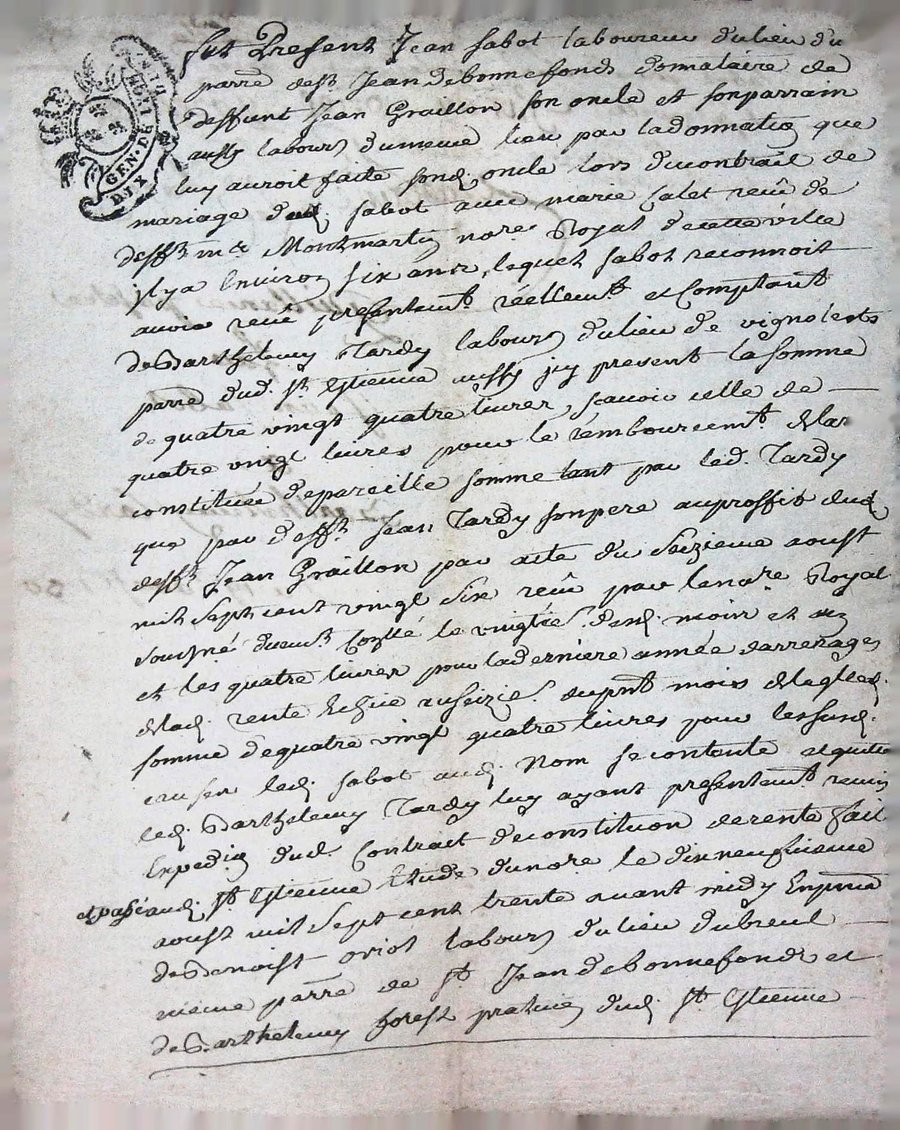 GEN. DE
DIX
fut Present Jean sabot laboureur du lieu du
parre de st Jean de bonnefonds donnataire de
deffunt Jean Graillon son oncle et son parrain
aussy labour dumeme lieu par la donnatio que
luy auroit faite sond oncle lors du contrait de
mariage dud sabot avec marie Calet receu de
defft me Montmartin nore Royal de cette ville
jl y a Environ six ans, lequel sabot reconnoit
avoir receu presentemt reellemt et Comptant
de Barthelemy Tardy labour du lieu de
parre dud st Estienne aussy jcy present la somme
de quatre vingt quatre livres, scavoir celle de
quatre vingt livres pour le remboursemt de la
constituée de pareille somme tant par led Tardy
que par defft Jean Tardy son pere au proffit dud
defft Jean Graillon par acte du seizieme aoust
mil sept cent vingt six receu par le nore Royal
souné duemt Conllé le vingtie desd mois et an
et les quatre livres pour la derniere année darrerages
de lad rente Echue au seizie du pnt mois de laqlle
somme de quatre vingt quatre livres pour les
led sabot aud Nom se contente et quitte
led Barthelemy Tardy luy ayant presentemt remis
Expedion dud Contrait de constituon de rente fait
et passé aud st Estienne Etude du nore le dix neufvieme
aoust mil sept cent trente avant midy En
de Benoist oriol labour du lieu dubreul
meme parre de st Jean de bonnefonds et
de Barthelemy forest praticien dud st Estienne